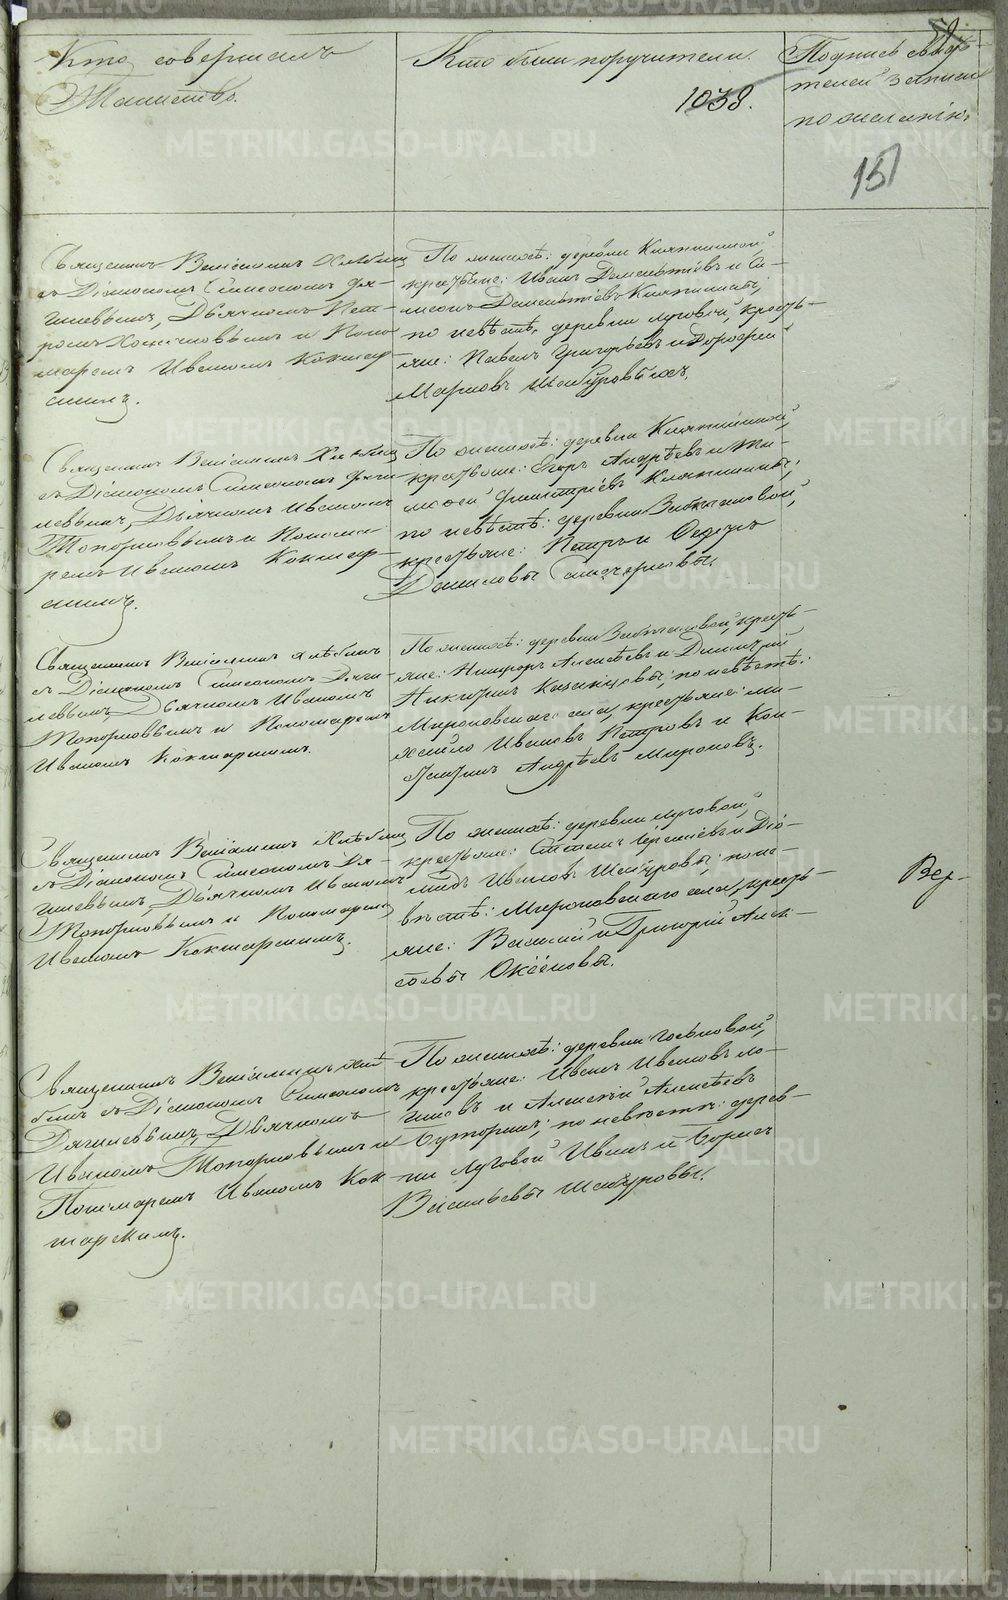 59.
Кто совершалъ
Таинство.
Кто были поручители.
1038.
Подпись свидѣ-
телей записи
по желанію.
151
Священникъ Веніаминъ Хлѣбинъ
съ Діакономъ Симеономъ Дя-
гилевымъ, Дьячкомъ Пет-
ромъ и Поно-
маремъ Иваномъ Кокшар-
скимъ.
По женихѣ: деревни Княжниной,
крестьяне: Иванъ Дементьевъ и Си-
меонъ Дементьевъ Княжнины,
по невѣстѣ, деревни Луговой, кресть-
яне: Павелъ Григорьевъ и Дорофей
Марковъ Шабуровыхъ.
Священникъ Веніаминъ Хлѣбинъ
съ Діакономъ Симеономъ Дяги-
левымъ, Дьячкомъ Иваномъ
Топорковымъ и Понома-
ремъ Иваномъ Кокшар-
скимъ.
По женихѣ: деревни Княжниной,
крестьяне: Егоръ Андрѣевъ и Ти-
мофей Дмитріевъ Княжнины;
по невѣстѣ: деревни
крестьяне: Петръ и Федоръ
Даниловы
Священникъ Веніаминъ Хлѣбинъ
съ Діакономъ Симеономъ Дяги-
левымъ, Дьячкомъ Иваномъ
Топорковымъ и Пономаремъ
Иваномъ Кокшарскимъ.
По женихѣ: деревни кресть-
яне: Никифоръ Алексѣевъ и Димитрій
Никитинъ Казанцовы; по невѣстѣ:
Мироновскаго села, крестьяне: Ми-
хайло Ивановъ Петровъ и Кон-
стантинъ Андрѣевъ Мироновъ.
Священникъ Веніаминъ Хлѣбинъ
съ Діакономъ Симеономъ Дя-
гилевымъ, Дьячкомъ Иваномъ
Топорковымъ и Пономаремъ
Иваномъ Кокшарскимъ.
По женихѣ: деревни Луговой,
крестьяне: Степанъ и Діо-
мидъ Ивановъ Шабуровы; по не-
вѣстѣ: Мироновскаго села, кресть-
яне: Василій и Григорій Алек-
сѣевы
Вер-
Священникъ Веніаминъ Хлѣ-
бинъ съ Діакономъ Симеономъ
Дягилевымъ, Дьячкомъ
Иваномъ Топорковымъ и
Пономаремъ Иваномъ Кок-
шарскимъ.
По женихѣ: деревни
крестьяне: Иванъ Ивановъ Ло-
гиновъ и Алексѣй Алексѣевъ
Буторинъ; по невѣстѣ: дерев-
ни Луговой Иванъ и Борисъ
Васильевы Шабуровы.
METRIKI.GASO-URAL.RU